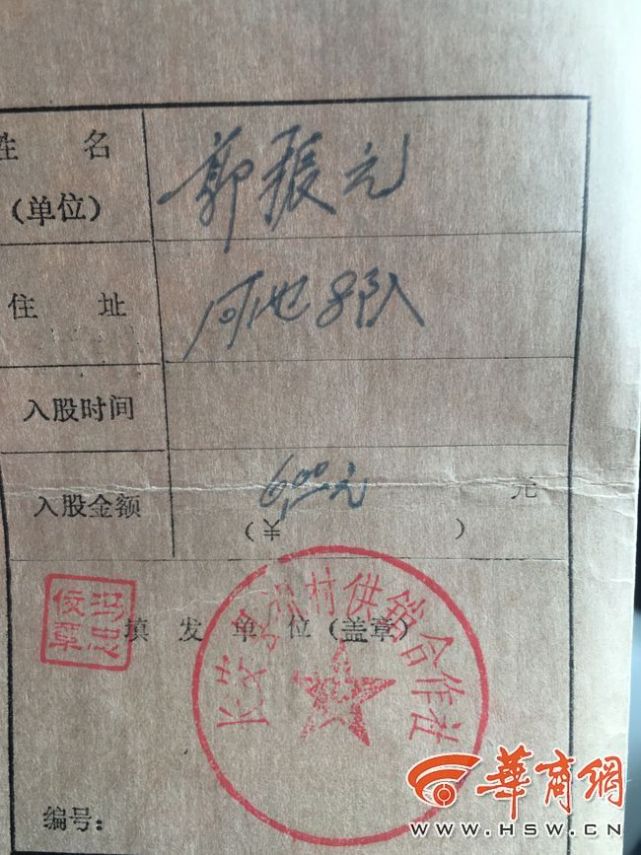 姓 名 郭振元
(单位)
住 址 河池8队
入股时间
入股金额 6.00元 元
(¥ )
冯忠
俊章
填发单位(盖章)
长安县 村供销合作社
编号:
華商網
WWW.HSW.CN